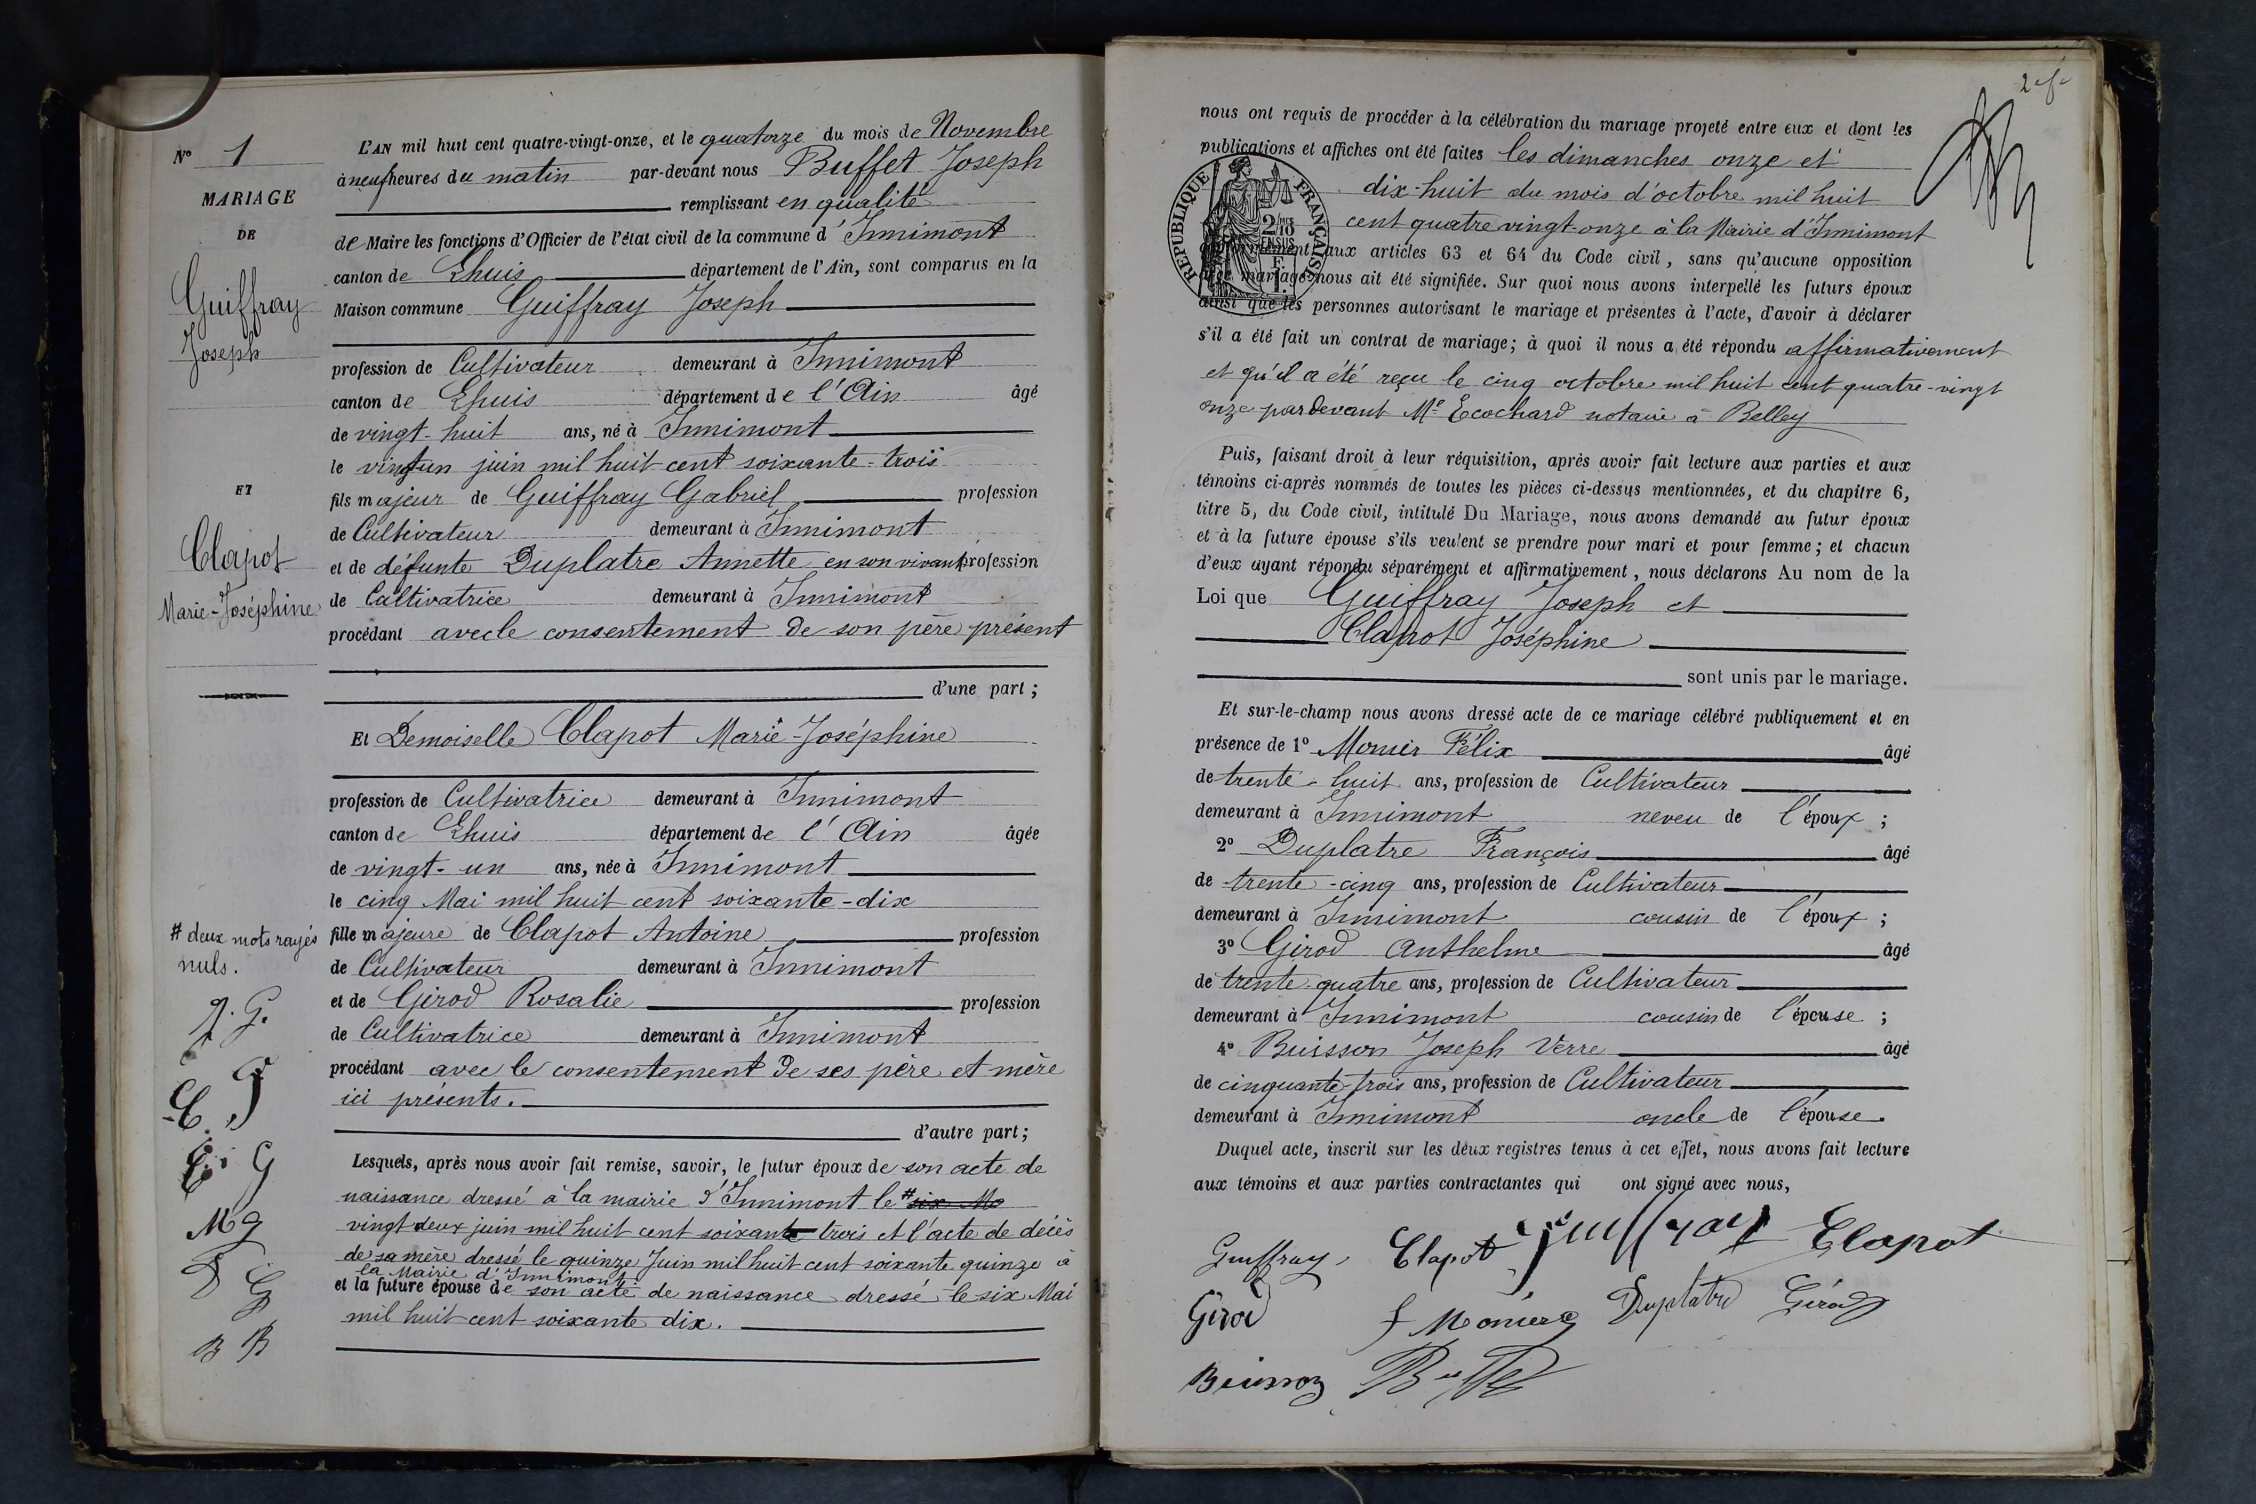 Nº 1
MARIAGE
DE
Guiffray
Joseph
ET
Clapot
Marie-Joséphine
# deux mots rayés
nuls.
J. G.
C. J
C. G
M g
D G
B B
L'AN mil huit cent quatre-vingt-onze, et le quatorze du mois de Novembre
à neuf heures du matin par-devant nous Buffet Joseph
remplissant en qualité
de Maire les fonctions d'Officier de l'état civil de la commune d'Innimont
canton de Lhuis département de l'Ain, sont comparus en la
Maison commune Guiffray Joseph
profession de Cultivateur demeurant à Innimont
canton de Lhuis département de l'Ain âgé
de vingt-huit ans, né à Innimont
le vingt un juin mil huit cent soixante-trois
fils majeur de Guiffray Gabriel profession
de Cultivateur demeurant à Innimont
et de défunte Duplatre Annette en son vivant profession
de Cultivatrice demeurant à Innimont
procédant avec le consentement de son père présent
d'une part ;
Et Demoiselle Clapot Marie-Joséphine
profession de Cultivatrice demeurant à Innimont
canton de Lhuis département de l'Ain âgée
de vingt-un ans, née à Innimont
le cinq Mai mil huit cent soixante-dix
fille majeure de Clapot Antoine profession
de Cultivateur demeurant à Innimont
et de Girod Rosalie profession
de Cultivatrice demeurant à Innimont
procédant avec le consentement de ses père et mère
ici présents.
d'autre part ;
Lesquels, après nous avoir fait remise, savoir, le futur époux de son acte de
naissance dressé à la mairie d'Innimont le # six Ma
vingt deux juin mil huit cent soixante trois et l'acte de décès
de sa mère dressé le quinze Juin mil huit cent soixante quinze à
la Mairie d'Innimont
et la future épouse de son acte de naissance dressé le six Mai
mil huit cent soixante dix.
2 f
nous ont requis de procéder à la célébration du mariage projeté entre eux et dont les
publications et affiches ont été faites les dimanches onze et
dix-huit du mois d'octobre mil huit
cent quatre vingt-onze à la Mairie d'Innimont
RÉPUBLIQUE FRANÇAISE
2/10 EN SUS
1 F.
conformément aux articles 63 et 64 du Code civil, sans qu'aucune opposition
mariage nous ait été signifiée. Sur quoi nous avons interpellé les futurs époux
ainsi que les personnes autorisant le mariage et présentes à l'acte, d'avoir à déclarer
s'il a été fait un contrat de mariage ; à quoi il nous a été répondu affirmativement
et qu'il a été reçu le cinq octobre mil huit cent quatre-vingt
onze pardevant Me Ecochard notaire à Belley
Puis, faisant droit à leur réquisition, après avoir fait lecture aux parties et aux
témoins ci-après nommés de toutes les pièces ci-dessus mentionnées, et du chapitre 6,
titre 5, du Code civil, intitulé Du Mariage, nous avons demandé au futur époux
et à la future épouse s'ils veulent se prendre pour mari et pour femme ; et chacun
d'eux ayant répondu séparément et affirmativement, nous déclarons Au nom de la
Loi que Guiffray Joseph et
Clapot Joséphine
sont unis par le mariage.
Et sur-le-champ nous avons dressé acte de ce mariage célébré publiquement et en
présence de 1º Monier Félix âgé
de trente-huit ans, profession de Cultivateur
demeurant à Innimont neveu de l'époux ;
2º Duplatre François âgé
de trente-cinq ans, profession de Cultivateur
demeurant à Innimont cousin de l'époux ;
3º Girod Anthelme âgé
de trente-quatre ans, profession de Cultivateur
demeurant à Innimont cousin de l'épouse ;
4º Buisson Joseph Verre âgé
de cinquante-trois ans, profession de Cultivateur
demeurant à Innimont oncle de l'épouse.
Duquel acte, inscrit sur les deux registres tenus à cet effet, nous avons fait lecture
aux témoins et aux parties contractantes qui ont signé avec nous,
Guiffray Clapot Guiffray Clapot
Girod f Monier Duplatre Girod
Buisson Buffet